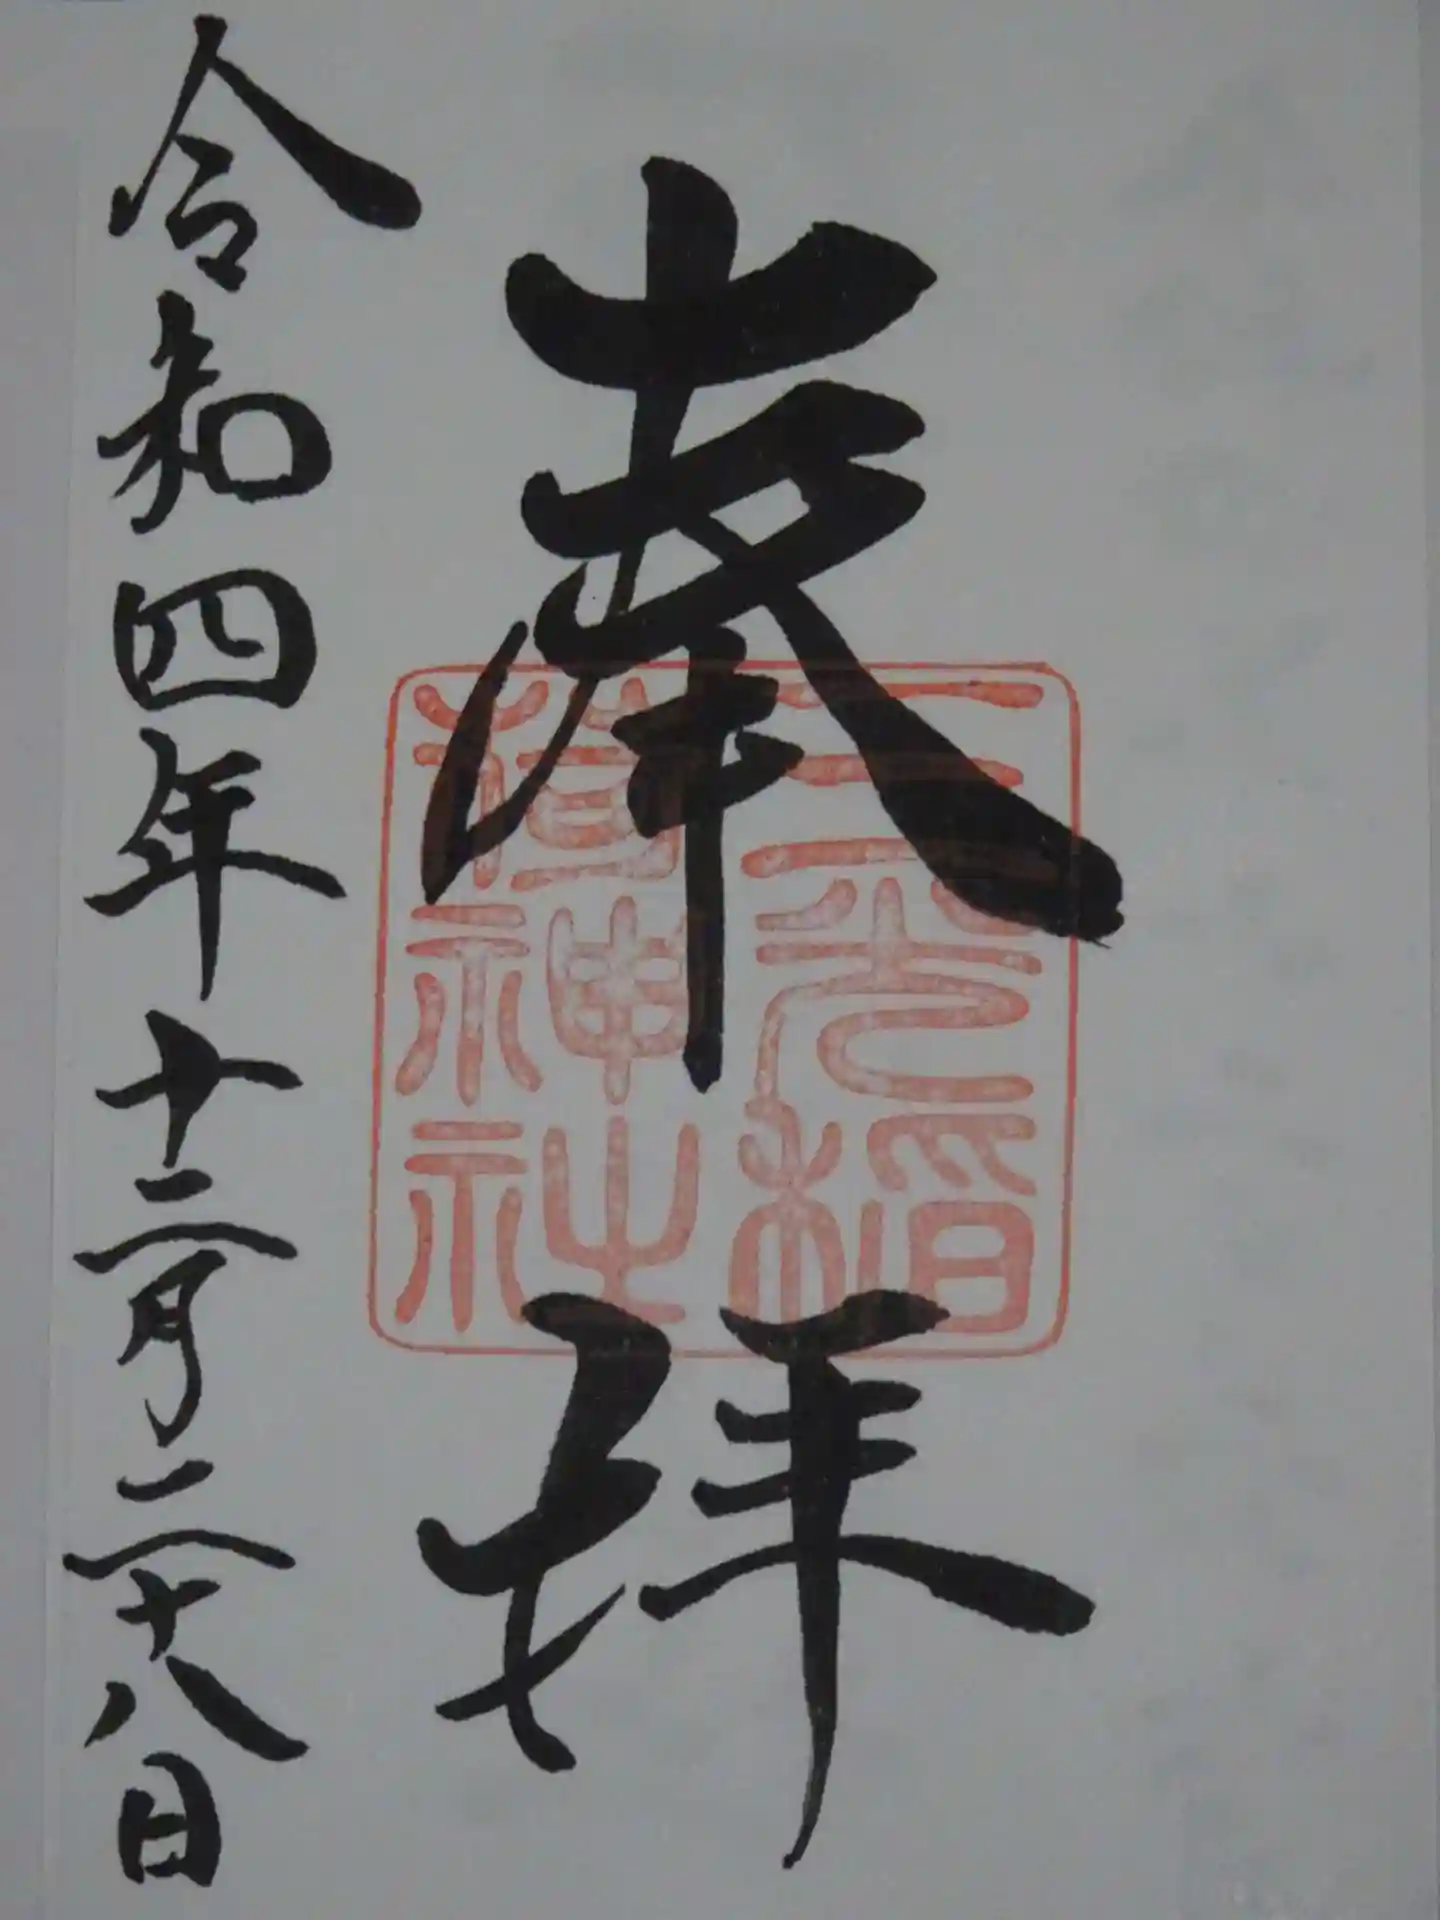 奉拝
三光稲
荷神社
令和四年十二月二十八日